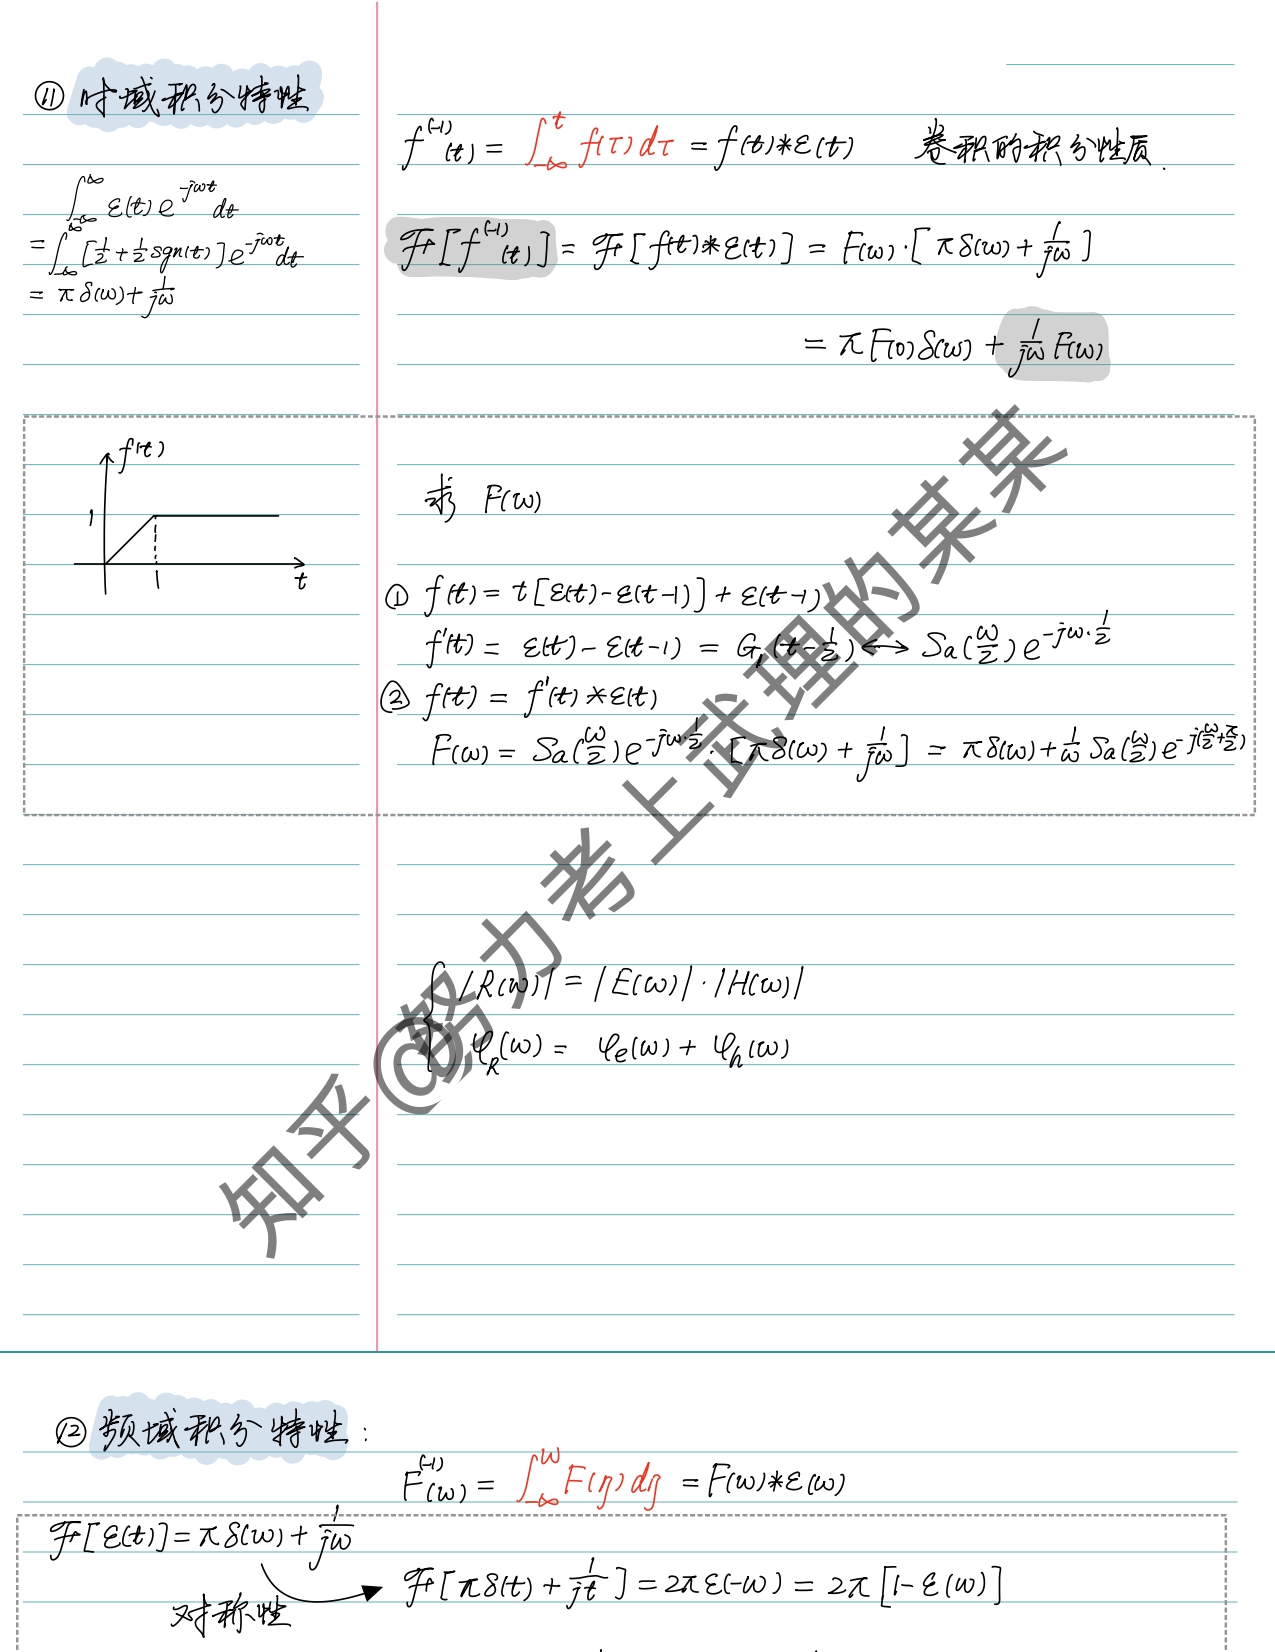 ⑪ 时域积分特性
f⁽⁻¹⁾(t) = ∫_{-∞}^{t} f(τ)dτ = f(t)*ε(t) 卷积的积分性质.
∫_{-∞}^{+∞} ε(t) e^{-jωt} dt
= ∫_{-∞}^{∞} [1/2 + 1/2 sgn(t)] e^{-jωt} dt
= πδ(ω) + 1/jω
ℱ[f⁽⁻¹⁾(t)] = ℱ[f(t)*ε(t)] = F(ω)·[πδ(ω) + 1/jω]
= πF(0)δ(ω) + 1/jω F(ω)
f(t)
1
1
t
求 F(ω)
① f(t) = t[ε(t)-ε(t-1)] + ε(t-1)
f'(t) = ε(t) - ε(t-1) = G₁(t-1/2) ↔ Sa(ω/2) e^{-jω·1/2}
② f(t) = f'(t) * ε(t)
F(ω) = Sa(ω/2) e^{-jω·1/2}·[πδ(ω) + 1/jω] = πδ(ω) + 1/ω Sa(ω/2) e^{-j(ω/2+π/2)}
|R(ω)| = |E(ω)|·|H(ω)|
φ_R(ω) = φ_e(ω) + φ_h(ω)
知乎@努力考上武理的某某
⑫ 频域积分特性:
F⁽⁻¹⁾(ω) = ∫_{-∞}^{ω} F(η)dη = F(ω)*ε(ω)
ℱ[ε(t)] = πδ(ω) + 1/jω
对称性
ℱ[πδ(t) + 1/jt] = 2πε(-ω) = 2π[1-ε(ω)]